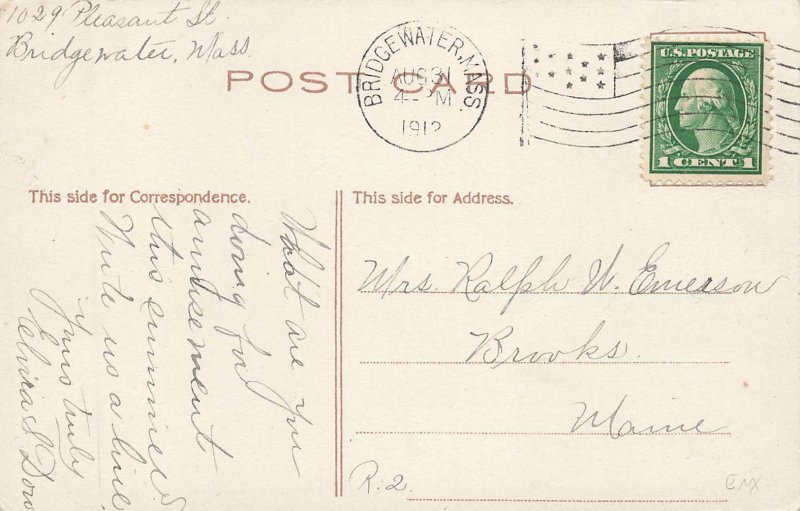 1029 Pleasant St.
Bridgewater, Mass.
POST CARD
BRIDGEWATER, MASS.
AUG 31
4-PM
1912
U.S. POSTAGE
1 CENT 1
This side for Correspondence.
What are you
doing for
amusement
this summer.
Write us a line.
Yours truly
Elvira S. Dow
This side for Address.
Mrs. Ralph W. Emerson
Brooks.
Maine
R. 2.